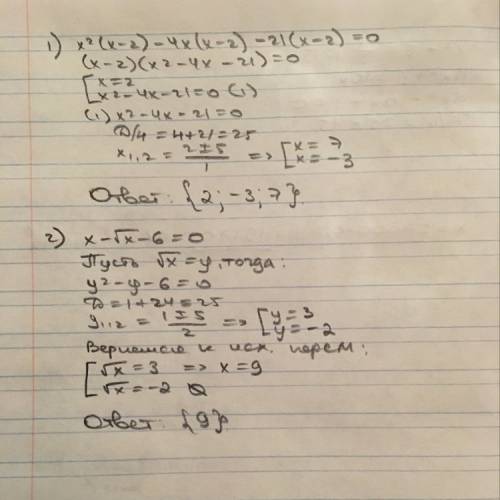 1) x²(x-2) - 4x(x-2) - 21(x-2) = 0
(x-2)(x²-4x-21)=0
[x=2
[x²-4x-21=0 (1)
(1) x²-4x-21=0
D/4=4+21=25
x₁,₂ = (2±5)/1 => [x=7 [x=-3
Ответ: {2; -3; 7}
2) x-√x-6=0
Пусть √x=y, тогда:
y²-y-6=0
D=1+24=25
y₁,₂ = (1±5)/2 => [y=3 [y=-2
Вернемся к исх. перем:
[√x=3 => x=9
[√x=-2 ∅
Ответ: {9}